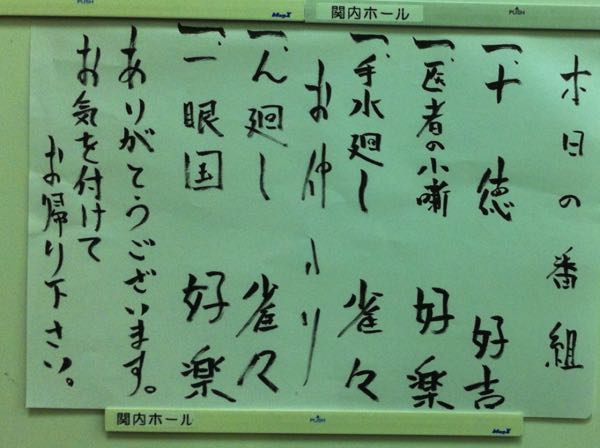 PUSH
MagX
関内ホール
PUSH
本日の番組
一、十徳 好吉
一、医者の小噺 好楽
一、手水廻し 雀々
お仲入り
一、ん廻し 雀々
一、一眼国 好楽
ありがとうございます。
お気を付けて
お帰り下さい。
関内ホール
PUSH
MagX